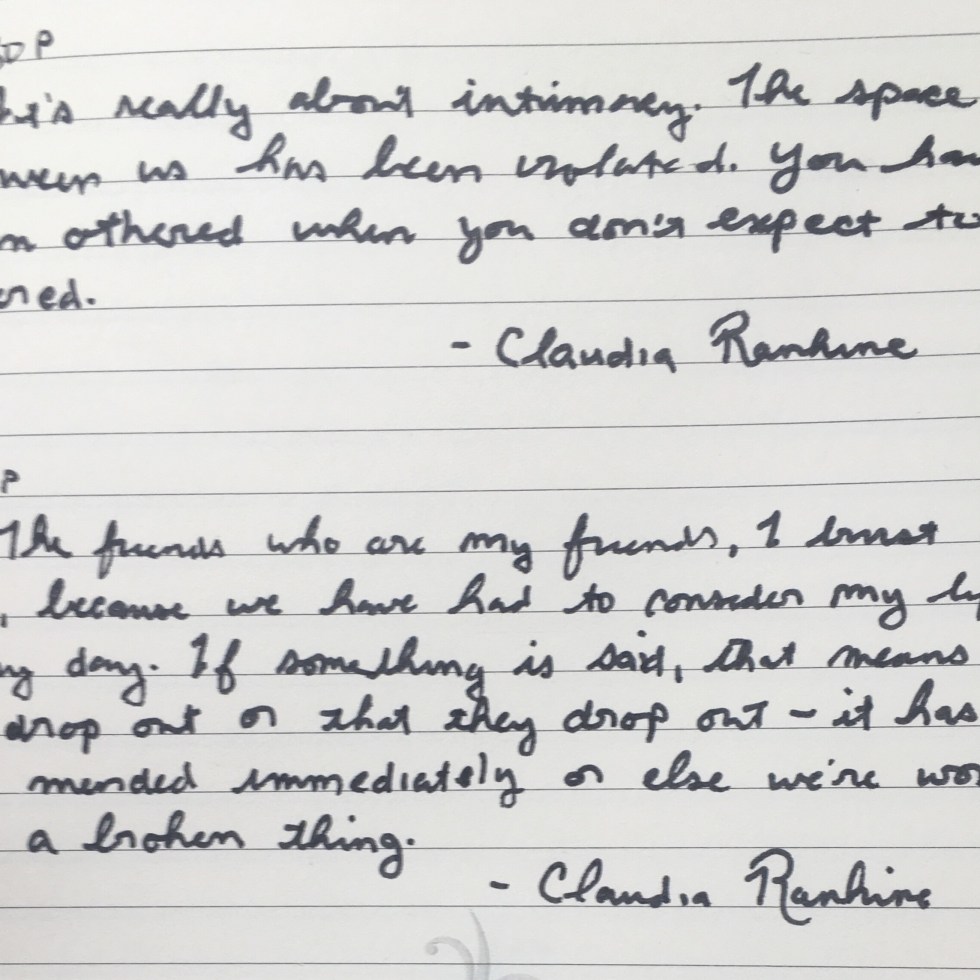 DP
it's really about intimacy. The space
ween us has been violated. You hav
n othered when you don't expect to
ered.
- Claudia Rankine
P
The friends who are my friends, I trust
, because we have had to consider my ly
ng day. If something is said, that means
drop out or that they drop out – it has
mended immediately or else we're wor
a broken thing.
- Claudia Rankine